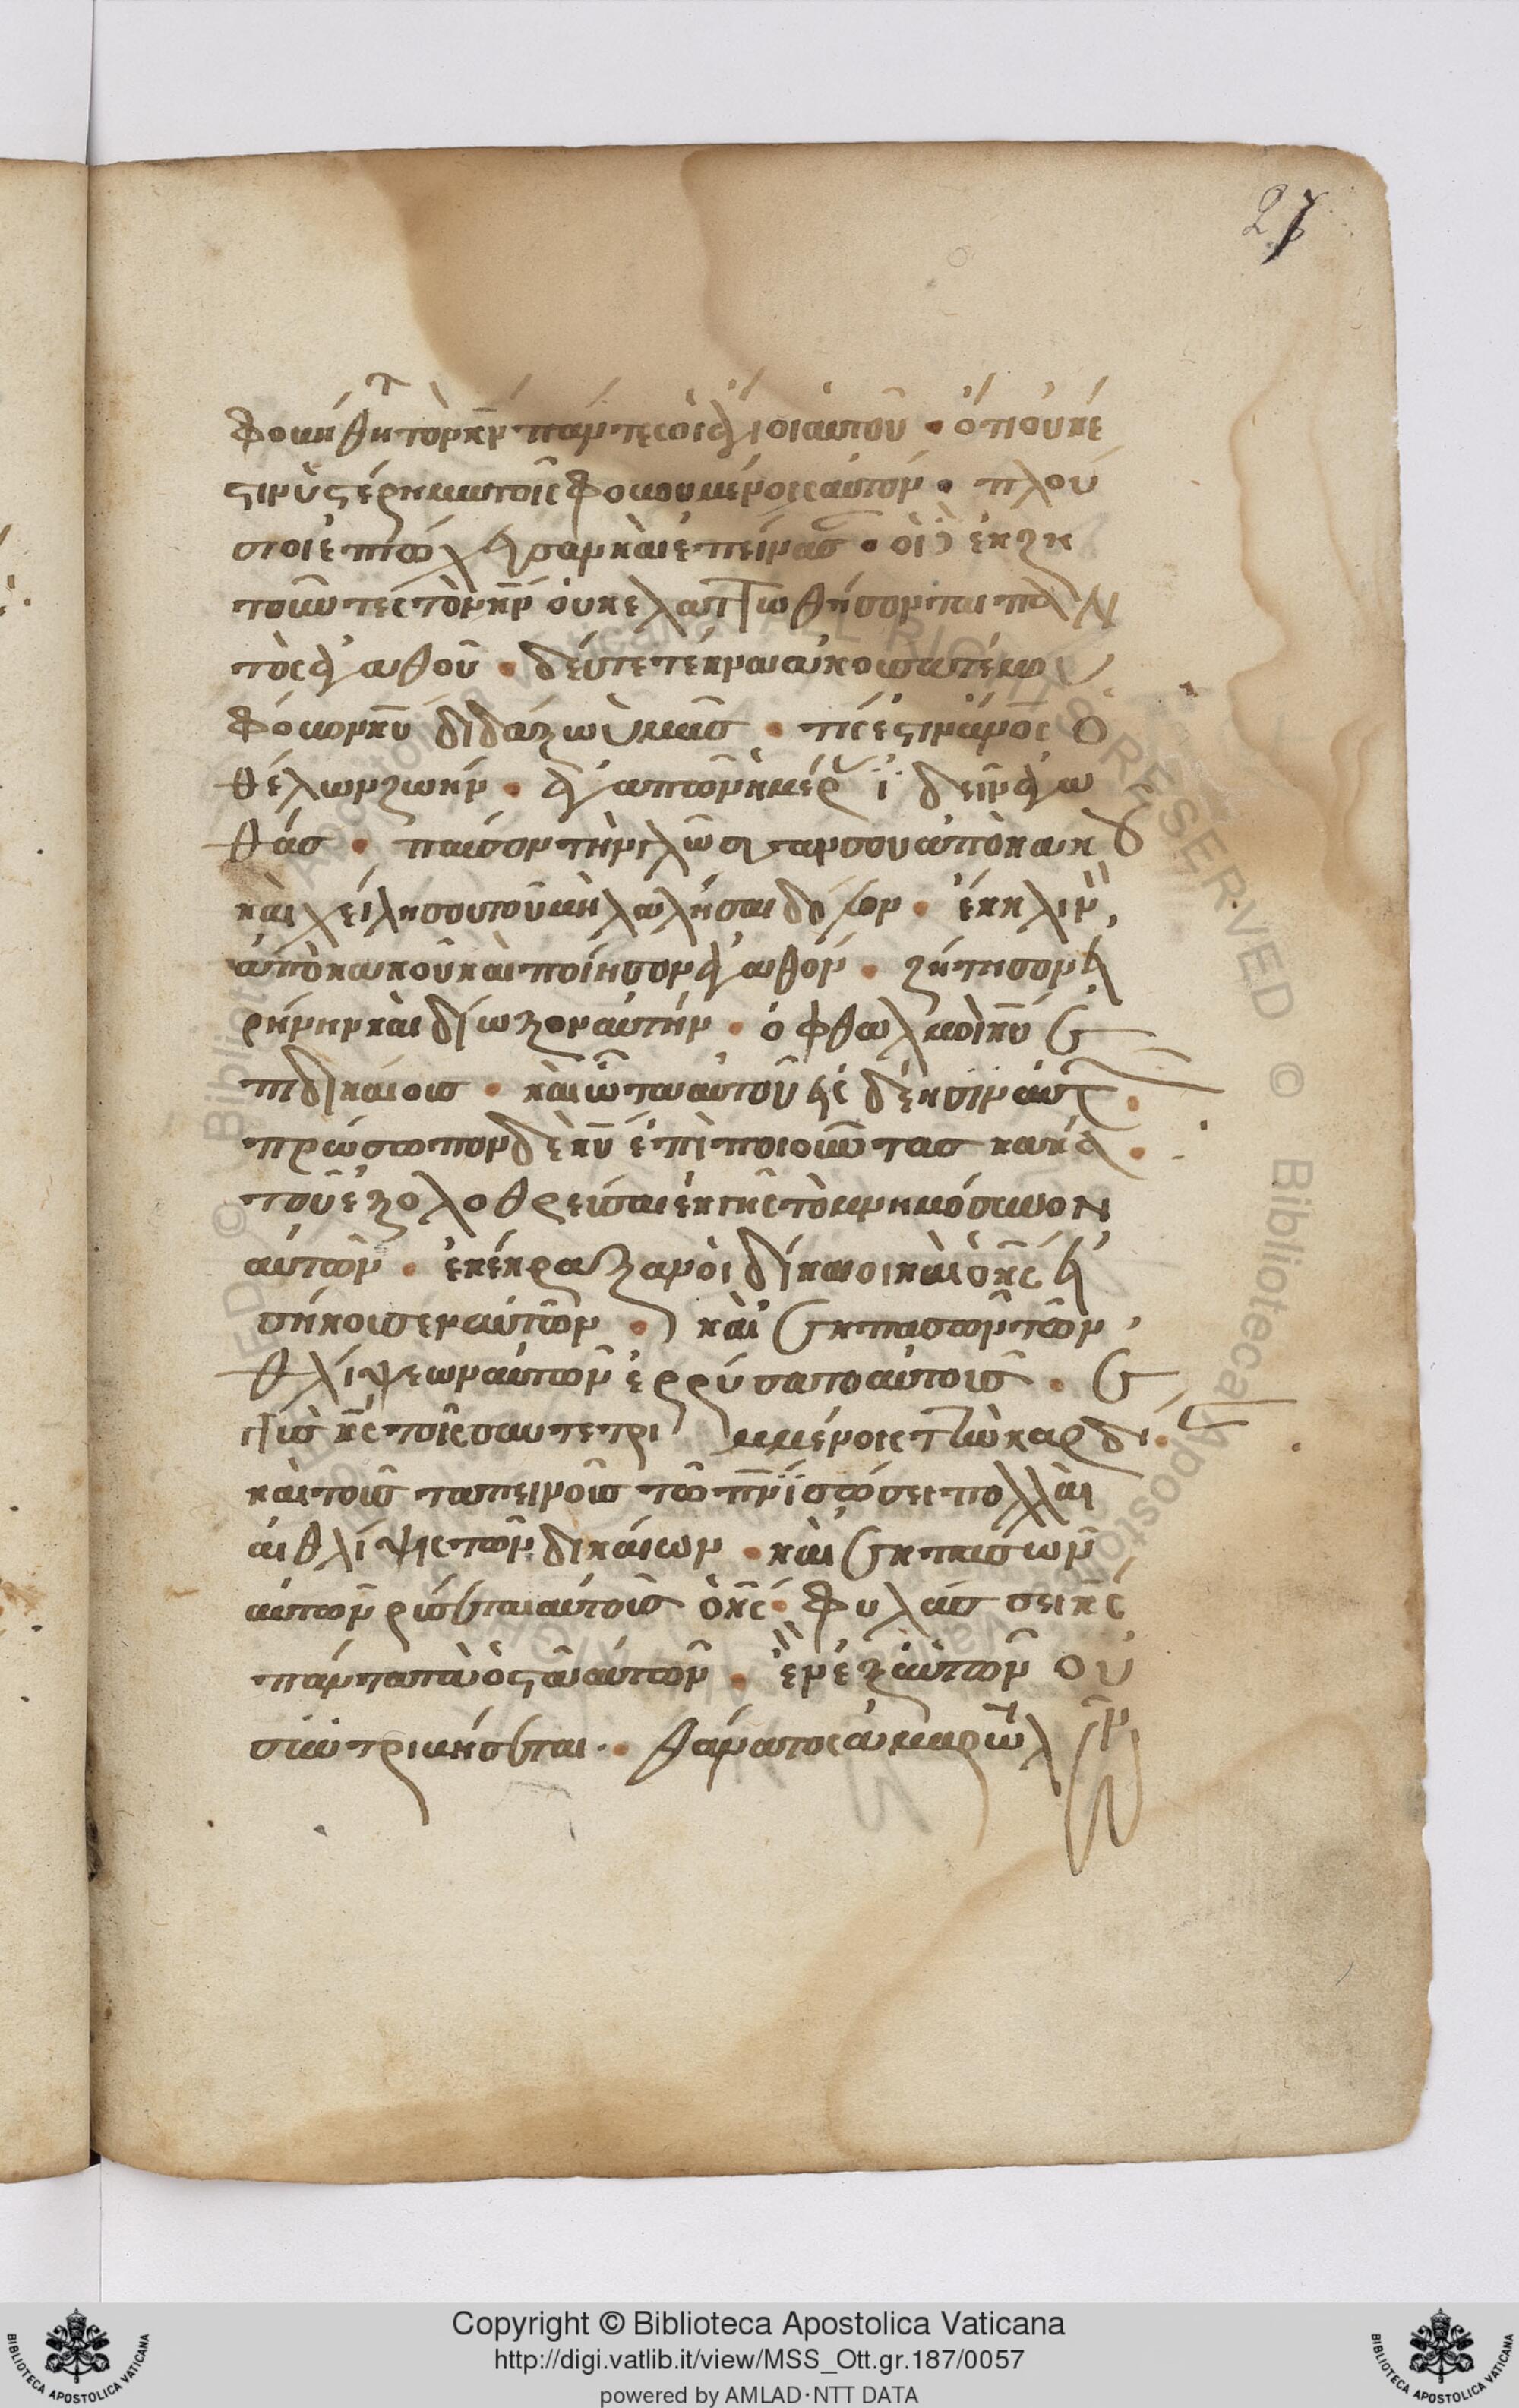 27
φοβήθητε τὸν κ̅ν̅ πάντες οἱ ἅγιοι αὐτοῦ · ὅτι οὐκ έ
στιν ὑστέρημα τοῖς φοβουμένοις αὐτόν · πλού
σιοι ἐπτώχευσαν καὶ ἐπείνασ · οἱ δὲ ἐκζη
τοῦντες τὸν κ̅ν̅ οὐκ ἐλαττωθήσονται παν
τὸς ἀγαθοῦ · δεύτε τέκνα ἀκούσατέ μου
φόβον κ̅υ̅ διδάξω ὑμᾶσ · τίς ἐστιν ἄν̅ο̅ς ὁ
θέλων ζωήν · ἀγαπῶν ἡμέρ ἰδεῖν ἀγα
θάσ · παῦσον τὴν γλῶσσαν σου ἀπὸ κακοῦ
καὶ χείλη σου τοῦ μὴ λαλῆσαι δόλον · ἔκκλινον
ἀπὸ κακοῦ καὶ ποίησον ἀγαθόν · ζήτησον εἰ
ρήνην καὶ δίωξον αὐτήν · ὀφθαλμοὶ κ̅υ̅ ἐ
πὶ δικαίουσ · καὶ ὦτα αὐτοῦ εἰς δέησιν αὐτῶν ·
πρώσωπον δὲ κ̅υ̅ ἐπὶ ποιοῦντασ κακά ·
τοῦ ἐξολοθρεῦσαι ἐκ γῆς τὸ μνημόσυνον
αὐτῶν · ἐκέκραξαν οἱ δίκαιοι καὶ ὁ κ̅ς̅ εἰ
σήκουσεν αὐτῶν · καὶ ἐκ πασῶν τῶν
θλίψεων αὐτῶν ἐρρύσατο αὐτούσ · ἐγ
γὺσ κ̅ς̅ τοῖς συντετριμμένοις τὴν καρδί ·
καὶ τοὺσ ταπεινοὺσ τῷ π̅ν̅ι̅ σώσει πολλαὶ
αἱ θλίψις τῶν δικαίων · καὶ ἐκ πασῶν
αὐτῶν ῥύσεται αὐτοὺσ ὁ κ̅ς̅ · φυλάσσει κ̅ς̅
πάντα τὰ ὀστᾶ αὐτῶν · ἓν ἐξ αὐτῶν οὐ
συντριβήσεται · θάνατος ἁμαρτωλῶν
Copyright © Biblioteca Apostolica Vaticana
http://digi.vatlib.it/view/MSS_Ott.gr.187/0057
powered by AMLAD·NTT DATA
BIBLIOTECA APOSTOLICA VATICANA
BIBLIOTECA APOSTOLICA VATICANA